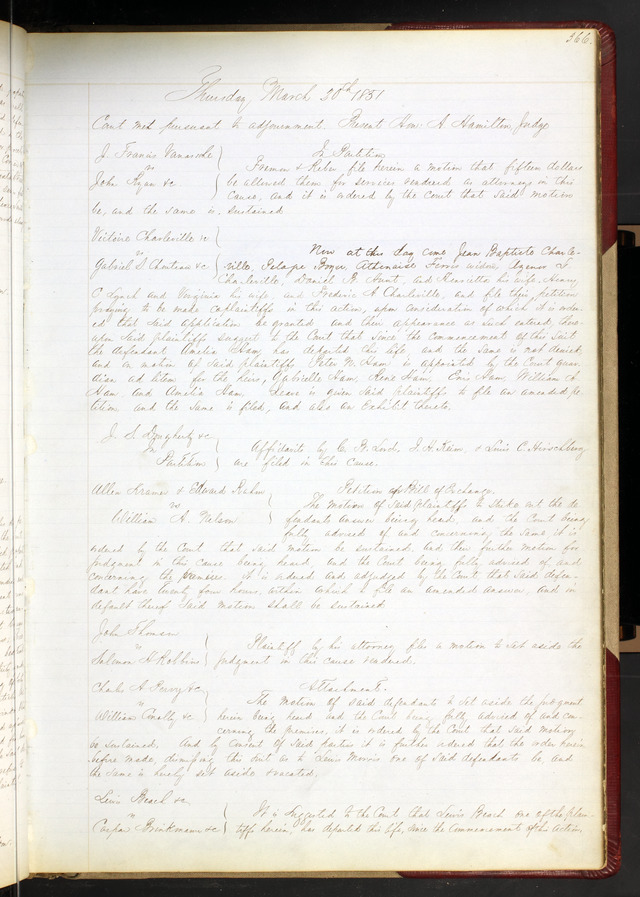 366.
Thursday March 20th 1851
Court met pursuant to adjournment. Present Hon. A. Hamilton Judge
J. Francis
vs
John Ryan &c
In Partition
& file herein a motion that fifteen dollars
be allowed them for services rendered as attorneys in this
cause, and it is ordered by the court that said motion
be, and the same is, sustained
Charleville &c
vs
Gabriel S Chouteau &c
Now at this day come Jean Baptiste Charle-
ville, Pelagie Athenaise widow,
Charleville, Daniel B. Hunt, and Henrietta his wife, Henry
C. Lynch and Virginia his wife, and Frederic A Charleville, and file their petition
praying to be made coplaintiffs in this action, upon consideration of which it is order-
ed that said application be granted and their appearance as such entered, there-
upon said plaintiffs suggest to the Court that since the commencement of this suit
the defendant Amelia Ham, has departed this life, and the same is not denied,
and on motion of said plaintiffs Peter W. Ham, is appointed by the Court guar-
dian ad litem for the heirs, Gabrielle Ham, Rene Ham, Ham, William C
Ham, and Amelia Ham. Leave is given said plaintiffs to file an amended pe
tition and the same is filed, and also an Exhibit thereto.
J. S. Dougherty &c
In Partition
Affidavits by C. B. Lord, J. H. & Louis C. Hirschberg
are filed in this cause.
Allen Kramer & Edward Rahm
vs
William A. Nelson
Petition of Bill of Exchange
The motion of said plaintiffs to strike out the de
fendants answer being heard, and the Court being
fully advised of and concerning the same it is
ordered by the Court that said motion be sustained, and their further motion for
judgment in the cause being heard and the Court being fully advised of and
concerning the premises. It is ordered and adjudged by the Court that said defen-
dant have twenty four hours, within which to file an amended answer, and in
default thereof said motion shall be sustained
John
vs
Solomon H Robbins
Plaintiff by his attorney files a motion to set aside the
judgment in this cause rendered.
Charles A &c
vs
William &c
Attachment.
The motion of said defendants to set aside the judgment
herein being heard and the Court being fully advised of and con-
cerning the premises, it is ordered by the Court that said motion
be sustained. And by consent of said parties it is further ordered that the order herein
before made, dismissing this suit as to Lewis Morris one of said defendants be, and
the same is hereby set aside & vacated.
Lewis Beach &c
vs
Caspar Brinkmann &c
It is suggested to the Court that Lewis Beach one of the plain-
tiffs herein, has departed this life, since the commencement of this action